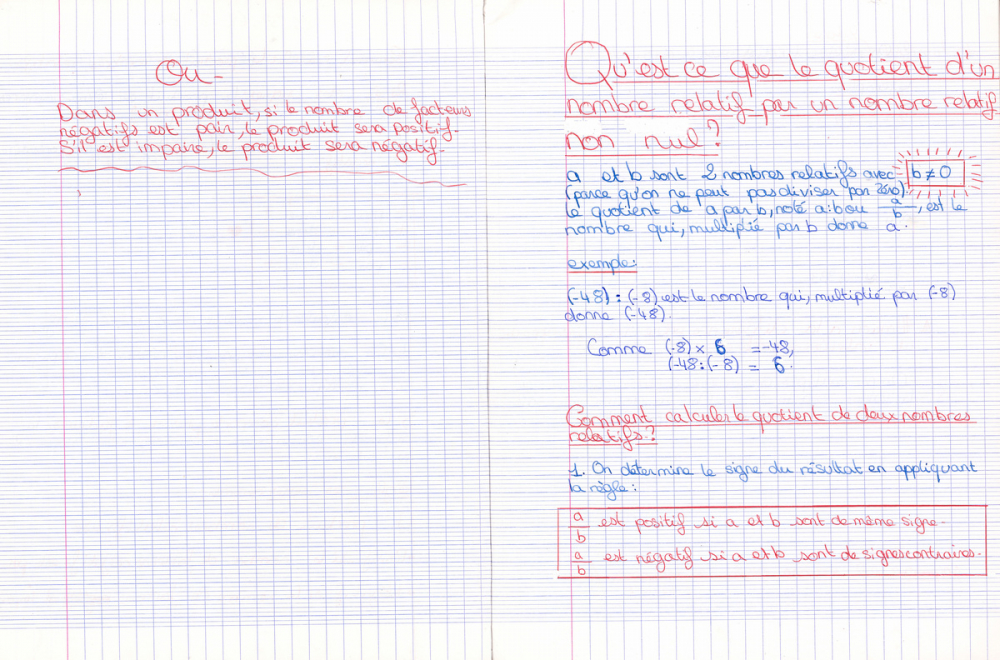 Ou-
Dans un produit, si le nombre de facteurs
négatifs est pair, le produit sera positif.
S'il est impaire, le produit sera négatif.
Qu'est ce que le quotient d'un
nombre relatif par un nombre relatif
non nul?
a et b sont 2 nombres relatifs avec b ≠ 0
(parce qu'on ne peut pas diviser par zéro).
Le quotient de a par b, noté a:b ou a/b, est le
nombre qui, multiplié par b donne a.
exemple:
(-48) : (-8) est le nombre qui, multiplié par (-8)
donne (-48).
Comme (-8) × 6 = -48,
(-48 : (-8) = 6.
Comment calculer le quotient de deux nombres
relatifs?
1. On détermine le signe du résultat en appliquant
la règle:
a/b est positif si a et b sont de même signe.
a/b est négatif si a et b sont de signes contraires.